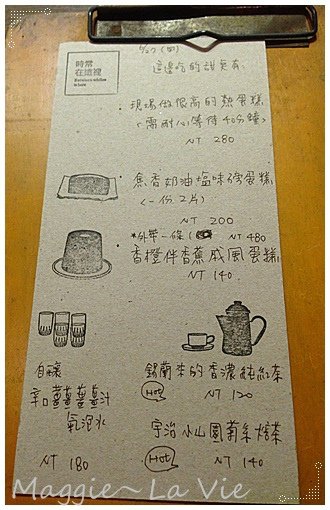 時常
在這裡
5/27 (四)
這邊吃的說更有:
· 現場做很高的熱蛋糕
(需耐心等待40分鐘)
NT 280
· 焦香奶油塩味磅蛋糕
(一份2片)
NT 200
*外帶一條 NT 480
· 香橙伴香蕉戚風蛋糕
NT 140
自釀
辛口薑薑薑薑汁
氣泡水
NT 180
錫蘭來的香濃純紅茶
Hot
NT 120
宇治小山園煎茶焙茶
Hot
NT 140
Maggie~La Vie